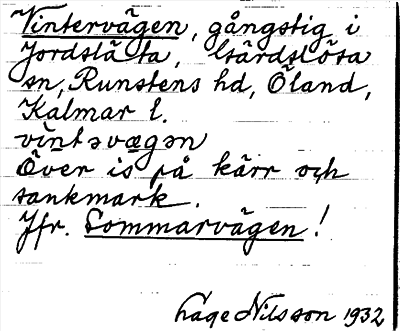 Vintervägen, gångstig i
Jordslätta, Gärdslösa
sn, Runstens hd, Öland,
Kalmar l.
vintəvægən
Över is på kärr och
sankmark.
Jfr. Sommarvägen!
Åge Nilsson 1932